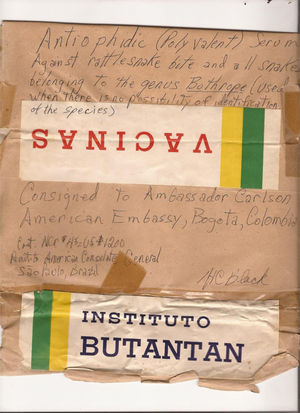 Antiophidic (Polyvalent) Serum
Against rattlesnake bite and all snake
belonging to the genus Bothrope (used
when there is no possibility of identification
of the species)
VACINAS
Consigned to Ambassador Carlson
American Embassy, Bogota, Colombia
American Consulate General
São Paulo, Brazil
Black
INSTITUTO
BUTANTAN